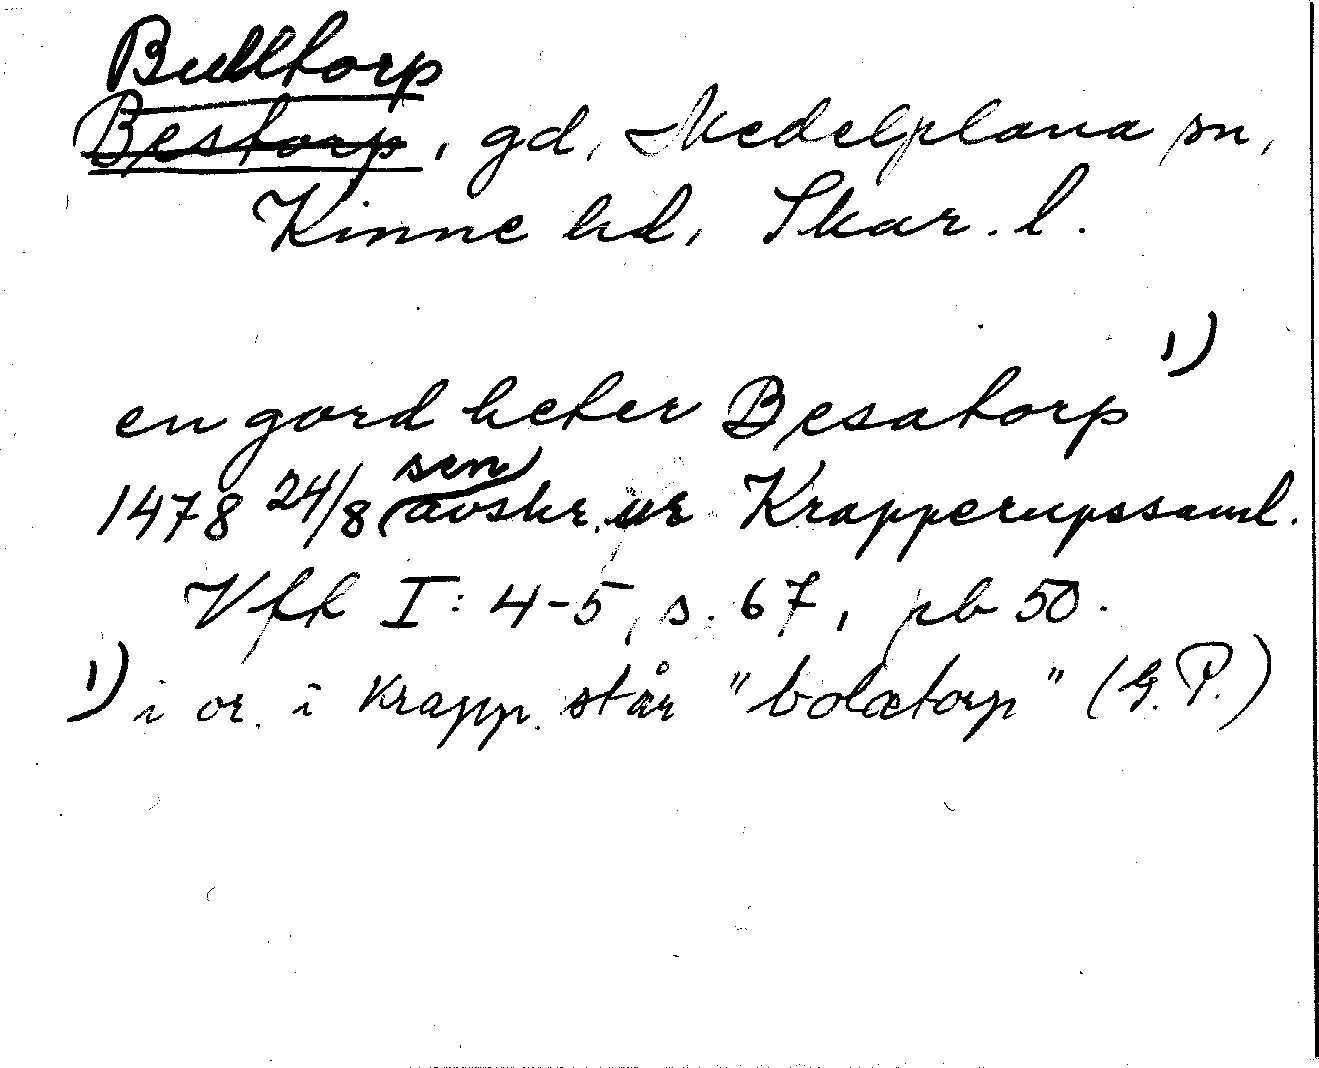 Bulltorp
Bestorp, gd, Medelplana sn,
Kinne hd, Skar. l.
en gord heter Besatorp 1)
sen
1478 24/8 (avskr. ur Krapperupssaml.
Vft I: 4-5, s. 67, pb 50.
1) i or. i Krapp. står "bolætorp" (G.P.)